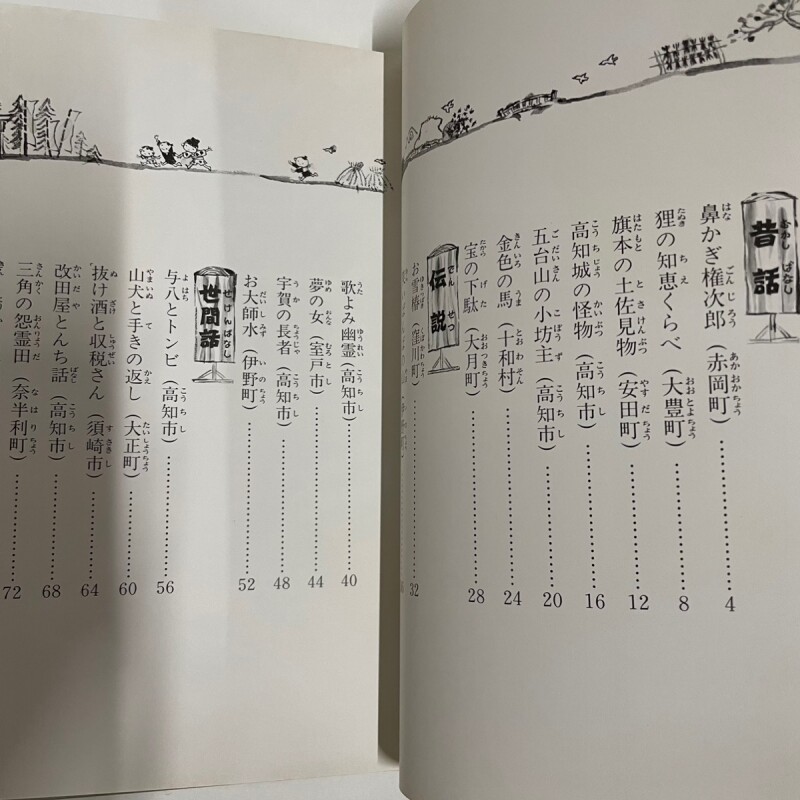 昔話
鼻かぎ権次郎（赤岡町）……4
狸の知恵くらべ（大豊町）……8
旗本の土佐見物（安田町）……12
高知城の怪物（高知市）……16
五台山の小坊主（高知市）……20
金色の馬（十和村）……24
宝の下駄（大月町）……28
伝説
お雪椿（窪川町）……32
歌よみ幽霊（高知市）……40
夢の女（室戸市）……44
宇賀の長者（高知市）……48
お大師水（伊野町）……52
世間話
与八とトンビ（高知市）……56
山犬と手きの返し（大正町）……60
抜け酒と収税さん（須崎市）……64
改田屋とんち話（高知市）……68
三角の怨霊田（奈半利町）……72